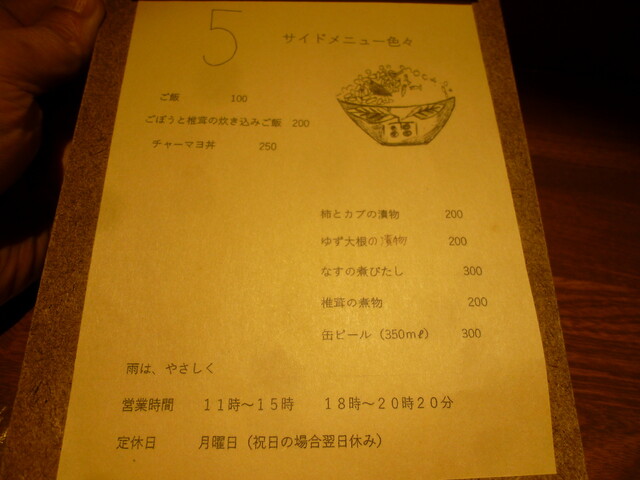 5 サイドメニュー色々
ご飯 100
ごぼうと椎茸の炊き込みご飯 200
チャーマヨ丼 250
柿とカブの漬物 200
ゆず大根の漬物 200
なすの煮びたし 300
椎茸の煮物 200
缶ビール（350mℓ） 300
雨は、やさしく
営業時間 11時～15時 18時～20時20分
定休日 月曜日（祝日の場合翌日休み）